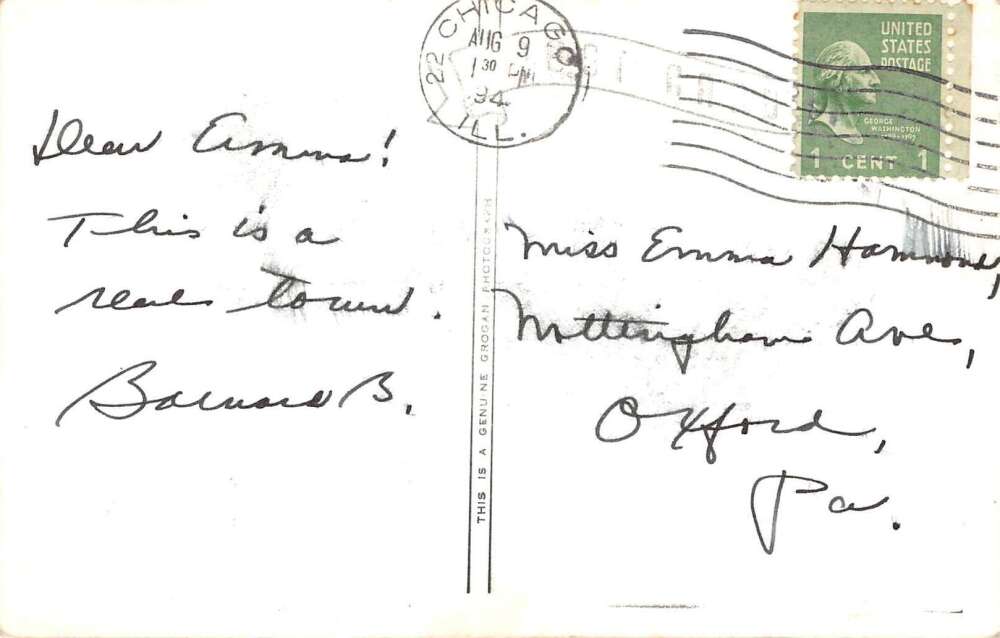 22 CHICAGO
AUG 9
1 30 PM
ILL.
UNITED
STATES
POSTAGE
GEORGE
WASHINGTON
1 CENT 1
Dear Emma!
This is a
real town.
Barnard B.
THIS IS A GENUINE GROGAN PHOTOGRAPH
Miss Emma Hammond,
Nottingham Ave,
Oxford,
Pa.